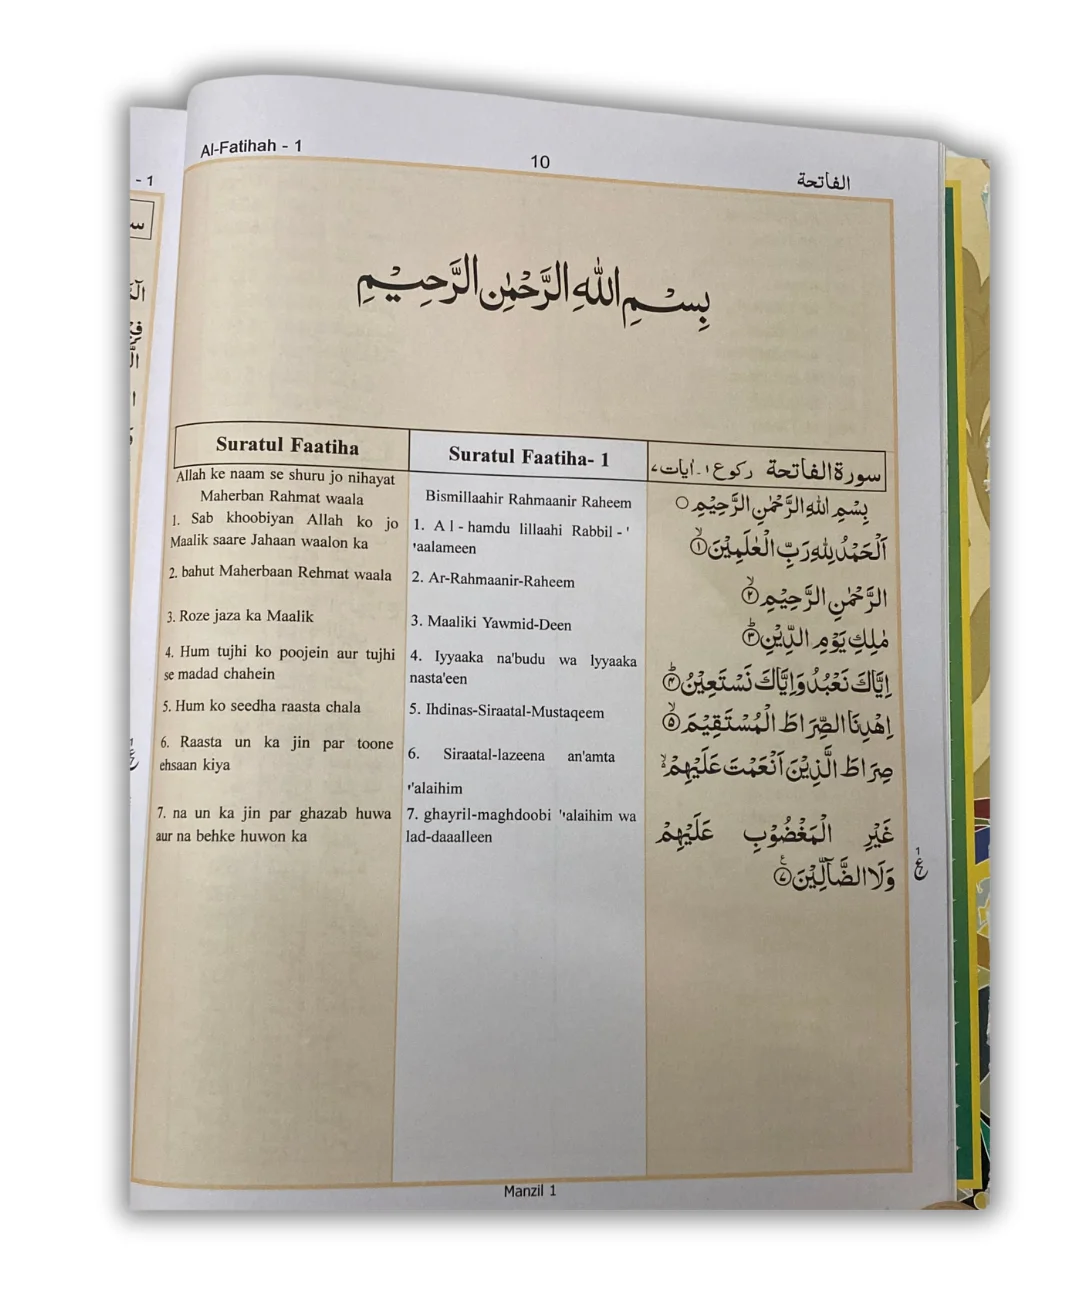 Al-Fatihah - 1
10
الفاتحة
بِسْمِ اللهِ الرَّحْمٰنِ الرَّحِيْمِ
Suratul Faatiha
Allah ke naam se shuru jo nihayat
Maherban Rahmat waala
1. Sab khoobiyan Allah ko jo
Maalik saare Jahaan waalon ka
2. bahut Maherbaan Rehmat waala
3. Roze jaza ka Maalik
4. Hum tujhi ko poojein aur tujhi
se madad chahein
5. Hum ko seedha raasta chala
6. Raasta un ka jin par toone
ehsaan kiya
7. na un ka jin par ghazab huwa
aur na behke huwon ka
Suratul Faatiha- 1
Bismillaahir Rahmaanir Raheem
1. Al-hamdu lillaahi Rabbil-'
'aalameen
2. Ar-Rahmaanir-Raheem
3. Maaliki Yawmid-Deen
4. Iyyaaka na'budu wa lyyaaka
nasta'een
5. Ihdinas-Siraatal-Mustaqeem
6. Siraatal-lazeena an'amta
''alaihim
7. ghayril-maghdoobi ''alaihim wa
lad-daaalleen
سورة الفاتحة رکوع ۱ - آیات ۷
بِسْمِ اللهِ الرَّحْمٰنِ الرَّحِيْمِ ○
اَلْحَمْدُ لِلّٰهِ رَبِّ الْعٰلَمِيْنَ ۙ۱
الرَّحْمٰنِ الرَّحِيْمِ ۙ۲
مٰلِكِ يَوْمِ الدِّيْنِ ؕ۳
اِيَّاكَ نَعْبُدُ وَاِيَّاكَ نَسْتَعِيْنُ ؕ۴
اِهْدِنَا الصِّرَاطَ الْمُسْتَقِيْمَ ۙ۵
صِرَاطَ الَّذِيْنَ اَنْعَمْتَ عَلَيْهِمْ ۙ۶
غَيْرِ الْمَغْضُوْبِ عَلَيْهِمْ
وَلَا الضَّآلِّيْنَ ۷
۱
ع
Manzil 1
- 1